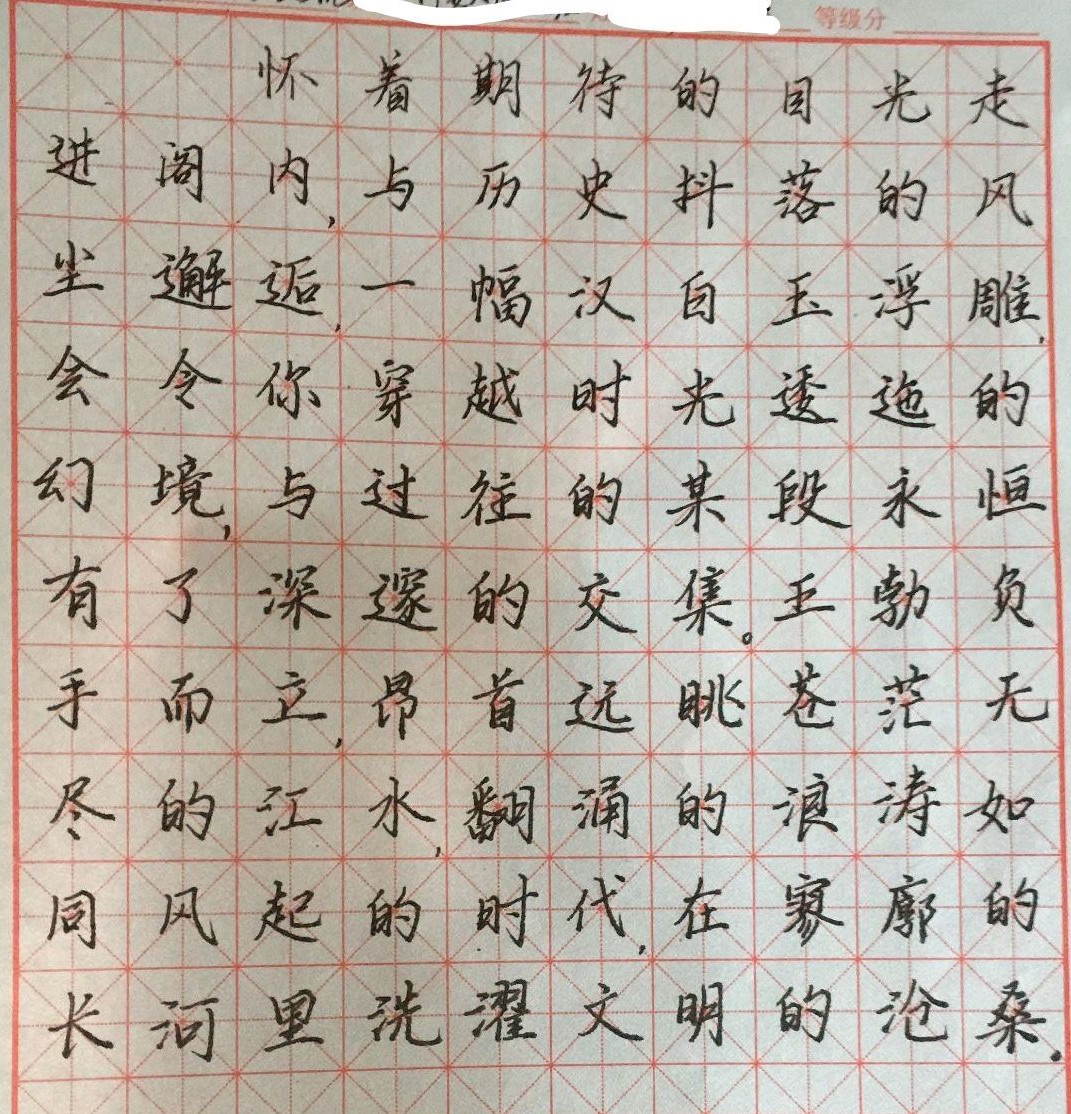 等级分
怀着期待的目光走
进阁内,与历史抖落的风
尘邂逅,一幅汉白玉浮雕,
会令你穿越时光逶迤的
幻境,与过往的某段永恒
有了深邃的交集。王勃负
手而立,昂首远眺苍茫无
尽的江水,翻涌的浪涛如
同风起的时代,在寥廓的
长河里洗濯文明的沧桑.